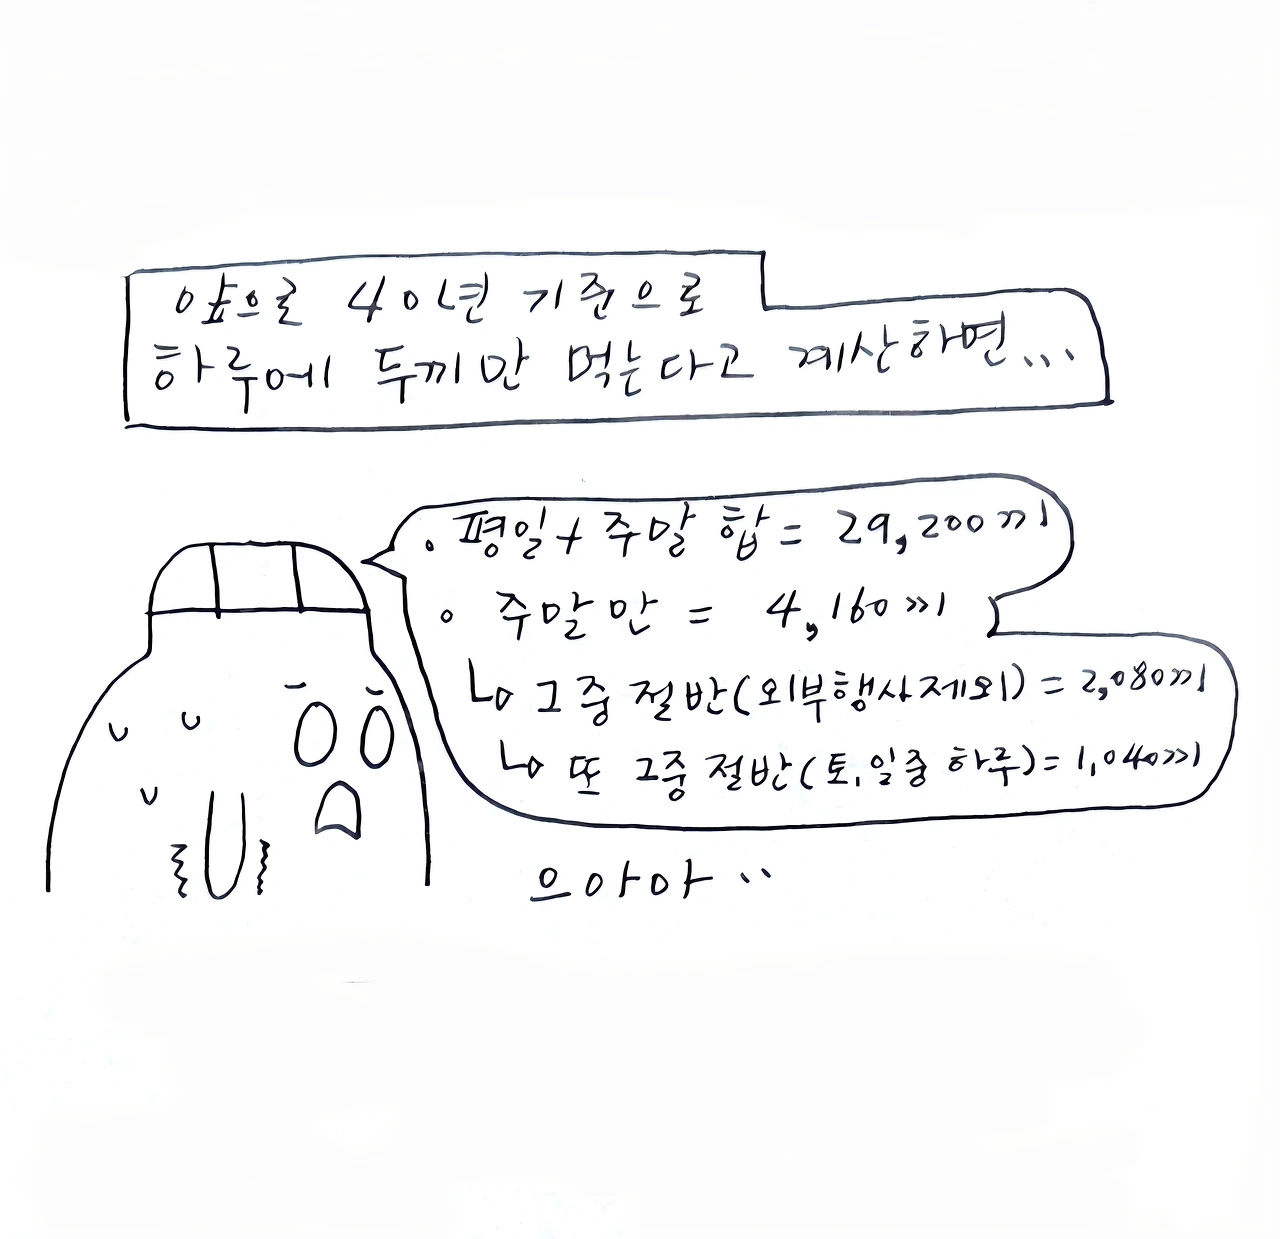 앞으로 40년 기준으로
하루에 두끼만 먹는다고 계산하면...
· 평일+주말 합 = 29,200끼
· 주말만 = 4,160끼
↳ 그중 절반(외부행사제외) = 2,080끼
↳ 또 그중 절반(토,일중 하루) = 1,040끼
으아아..